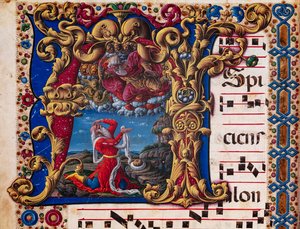 A
Spi
ciens
alon